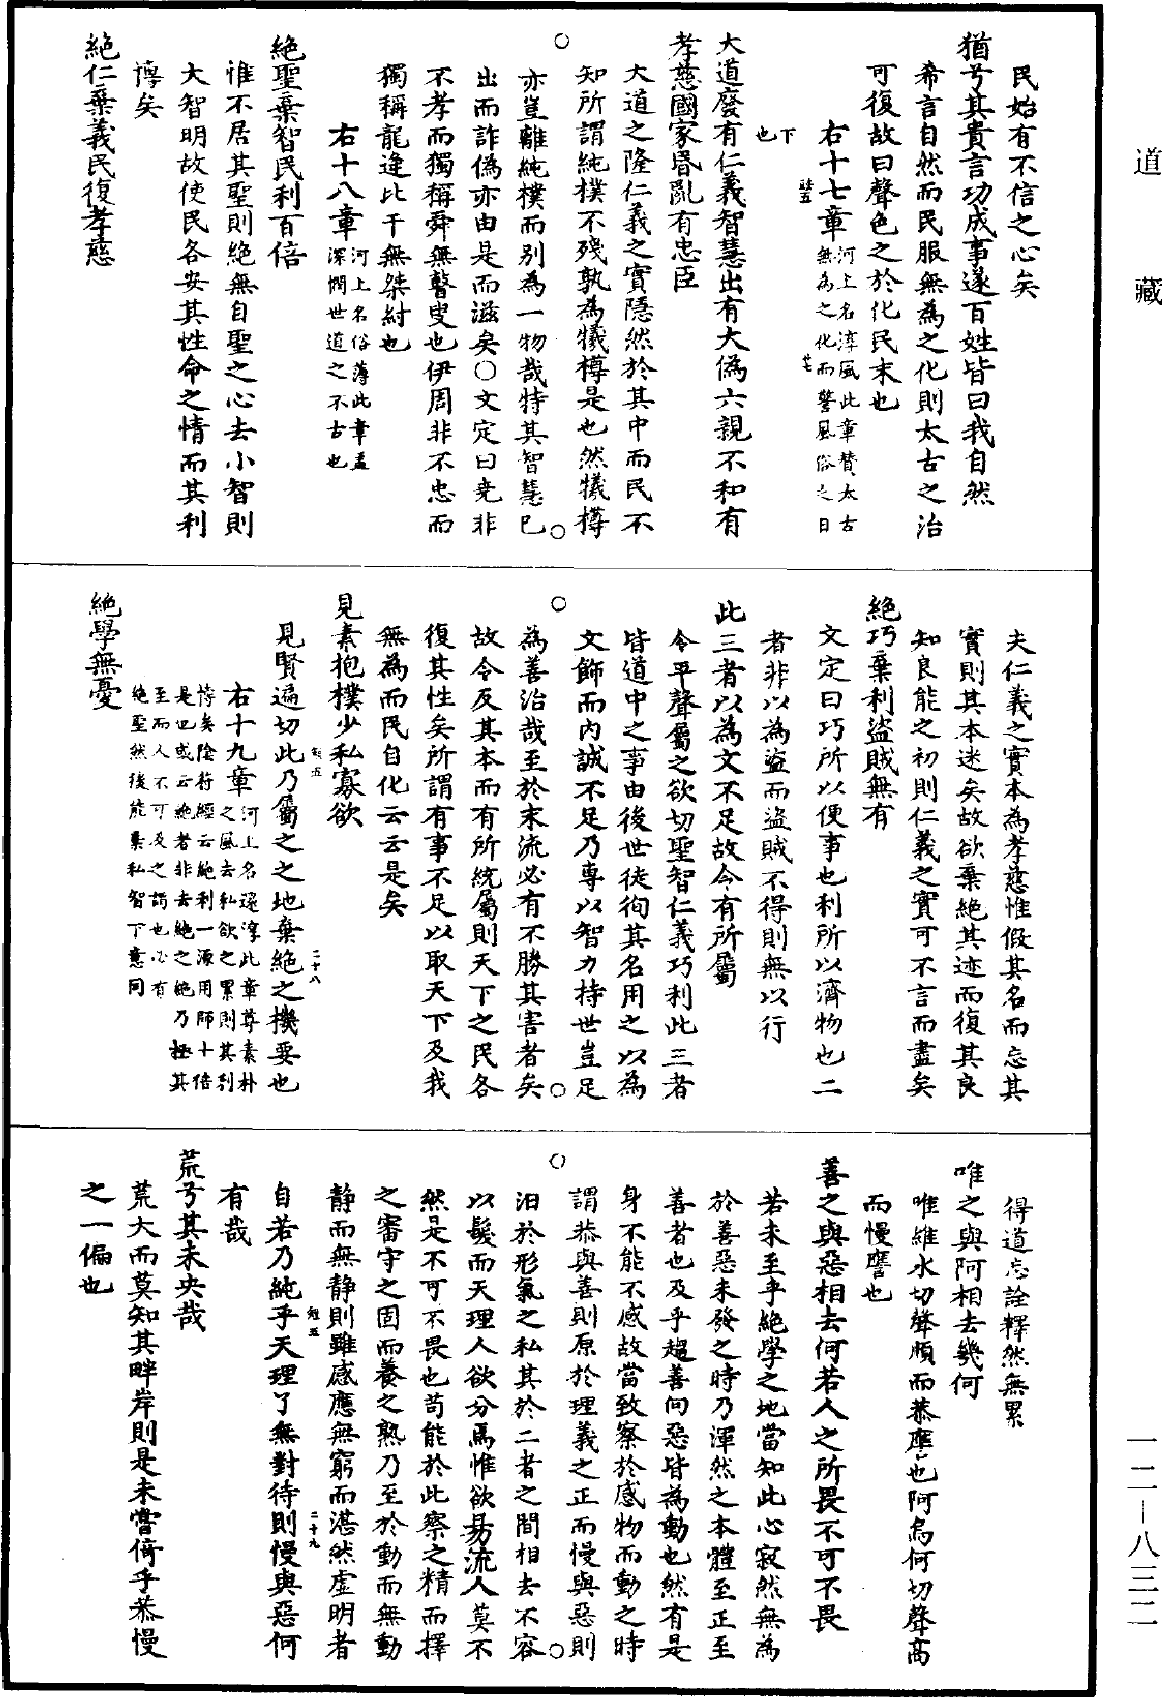 道藏
民始有不信之心矣
猶兮其貴言功成事遂百姓皆曰我自然
希言自然而民服無為之化則太古之治
可復故曰聲色之於化民末也
右十七章河上名淳風此章贊太古
無為之化而警風俗之日
下
也
大道廢有仁義智慧出有大偽六親不和有
孝慈國家昬亂有忠臣
大道之隆仁義之實隱然於其中而民不
知所謂純樸不殘孰為犧樽是也然犧樽
亦豈離純樸而別為一物哉特其智慧已
出而詐偽亦由是而滋矣○文定曰堯非
不孝而獨稱舜無瞽叟也伊周非不忠而
獨稱龍逄比干無桀紂也
右十八章河上名俗薄此章盖
深憫世道之不古也
絕聖棄智民利百倍
惟不居其聖則絕無自聖之心去小智則
大智明故使民各安其性命之情而其利
博矣
絕仁棄義民復孝慈
夫仁義之實本為孝慈惟假其名而忘其
實則其本迷矣故欲棄絕其迹而復其良
知良能之初則仁義之實可不言而盡矣
絕巧棄利盜賊無有
文定曰巧所以便事也利所以濟物也二
者非以為盜而盜賊不得則無以行
此三者以為文不足故令有所屬
令平聲屬之欲切聖智仁義巧利此三者
皆道中之事由後世徒徇其名用之以為
文飾而內誠不足乃專以智力持世豈足
為善治哉至於末流必有不勝其害者矣
故令反其本而有所統屬則天下之民各
復其性矣所謂有事不足以取天下及我
無為而民自化云云是矣
見素抱樸少私寡欲
二十八
見賢遍切此乃屬之之地棄絕之機要也
右十九章河上名還淳此章尊素朴
之風去私欲之累則其利
博矣陰符經云絕利一源用師十倍
是也或云絕者非去絕之絕乃極其
至而人不可及之謂也必有
絕聖然後能棄私智下意同
絕學無憂
得道忘詮釋然無累
唯之與阿相去幾何
唯維水切聲順而恭應也阿烏何切聲高
而慢譍也
善之與惡相去何若人之所畏不可不畏
若未至乎絕學之地當知此心寂然無為
於善惡未發之時乃渾然之本體至正至
善者也及乎趨善向惡皆為動也然有是
身不能不感故當致察於感物而動之時
謂恭與善則原於理義之正而慢與惡則
汨於形氣之私其於二者之間相去不容
以髮而天理人欲分焉惟欲易流人莫不
然是不可不畏也苟能於此察之精而擇
之審守之固而養之熟乃至於動而無動
静而無静則雖感應無窮而湛然虛明者
二十九
自若乃純乎天理了無對待則慢與惡何
有哉
荒兮其未央哉
荒大而莫知其畔岸則是未嘗倚乎恭慢
之一偏也
一二—八三二